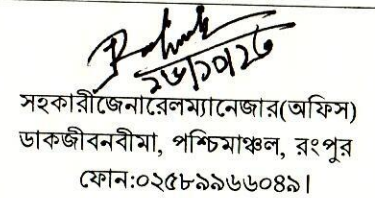 সহকারীজেনারেলম্যানেজার(অফিস)
ডাকজীবনবীমা, পশ্চিমাঞ্চল, রংপুর
ফোন:০২৫৮৯৯৬৬০৪৯।